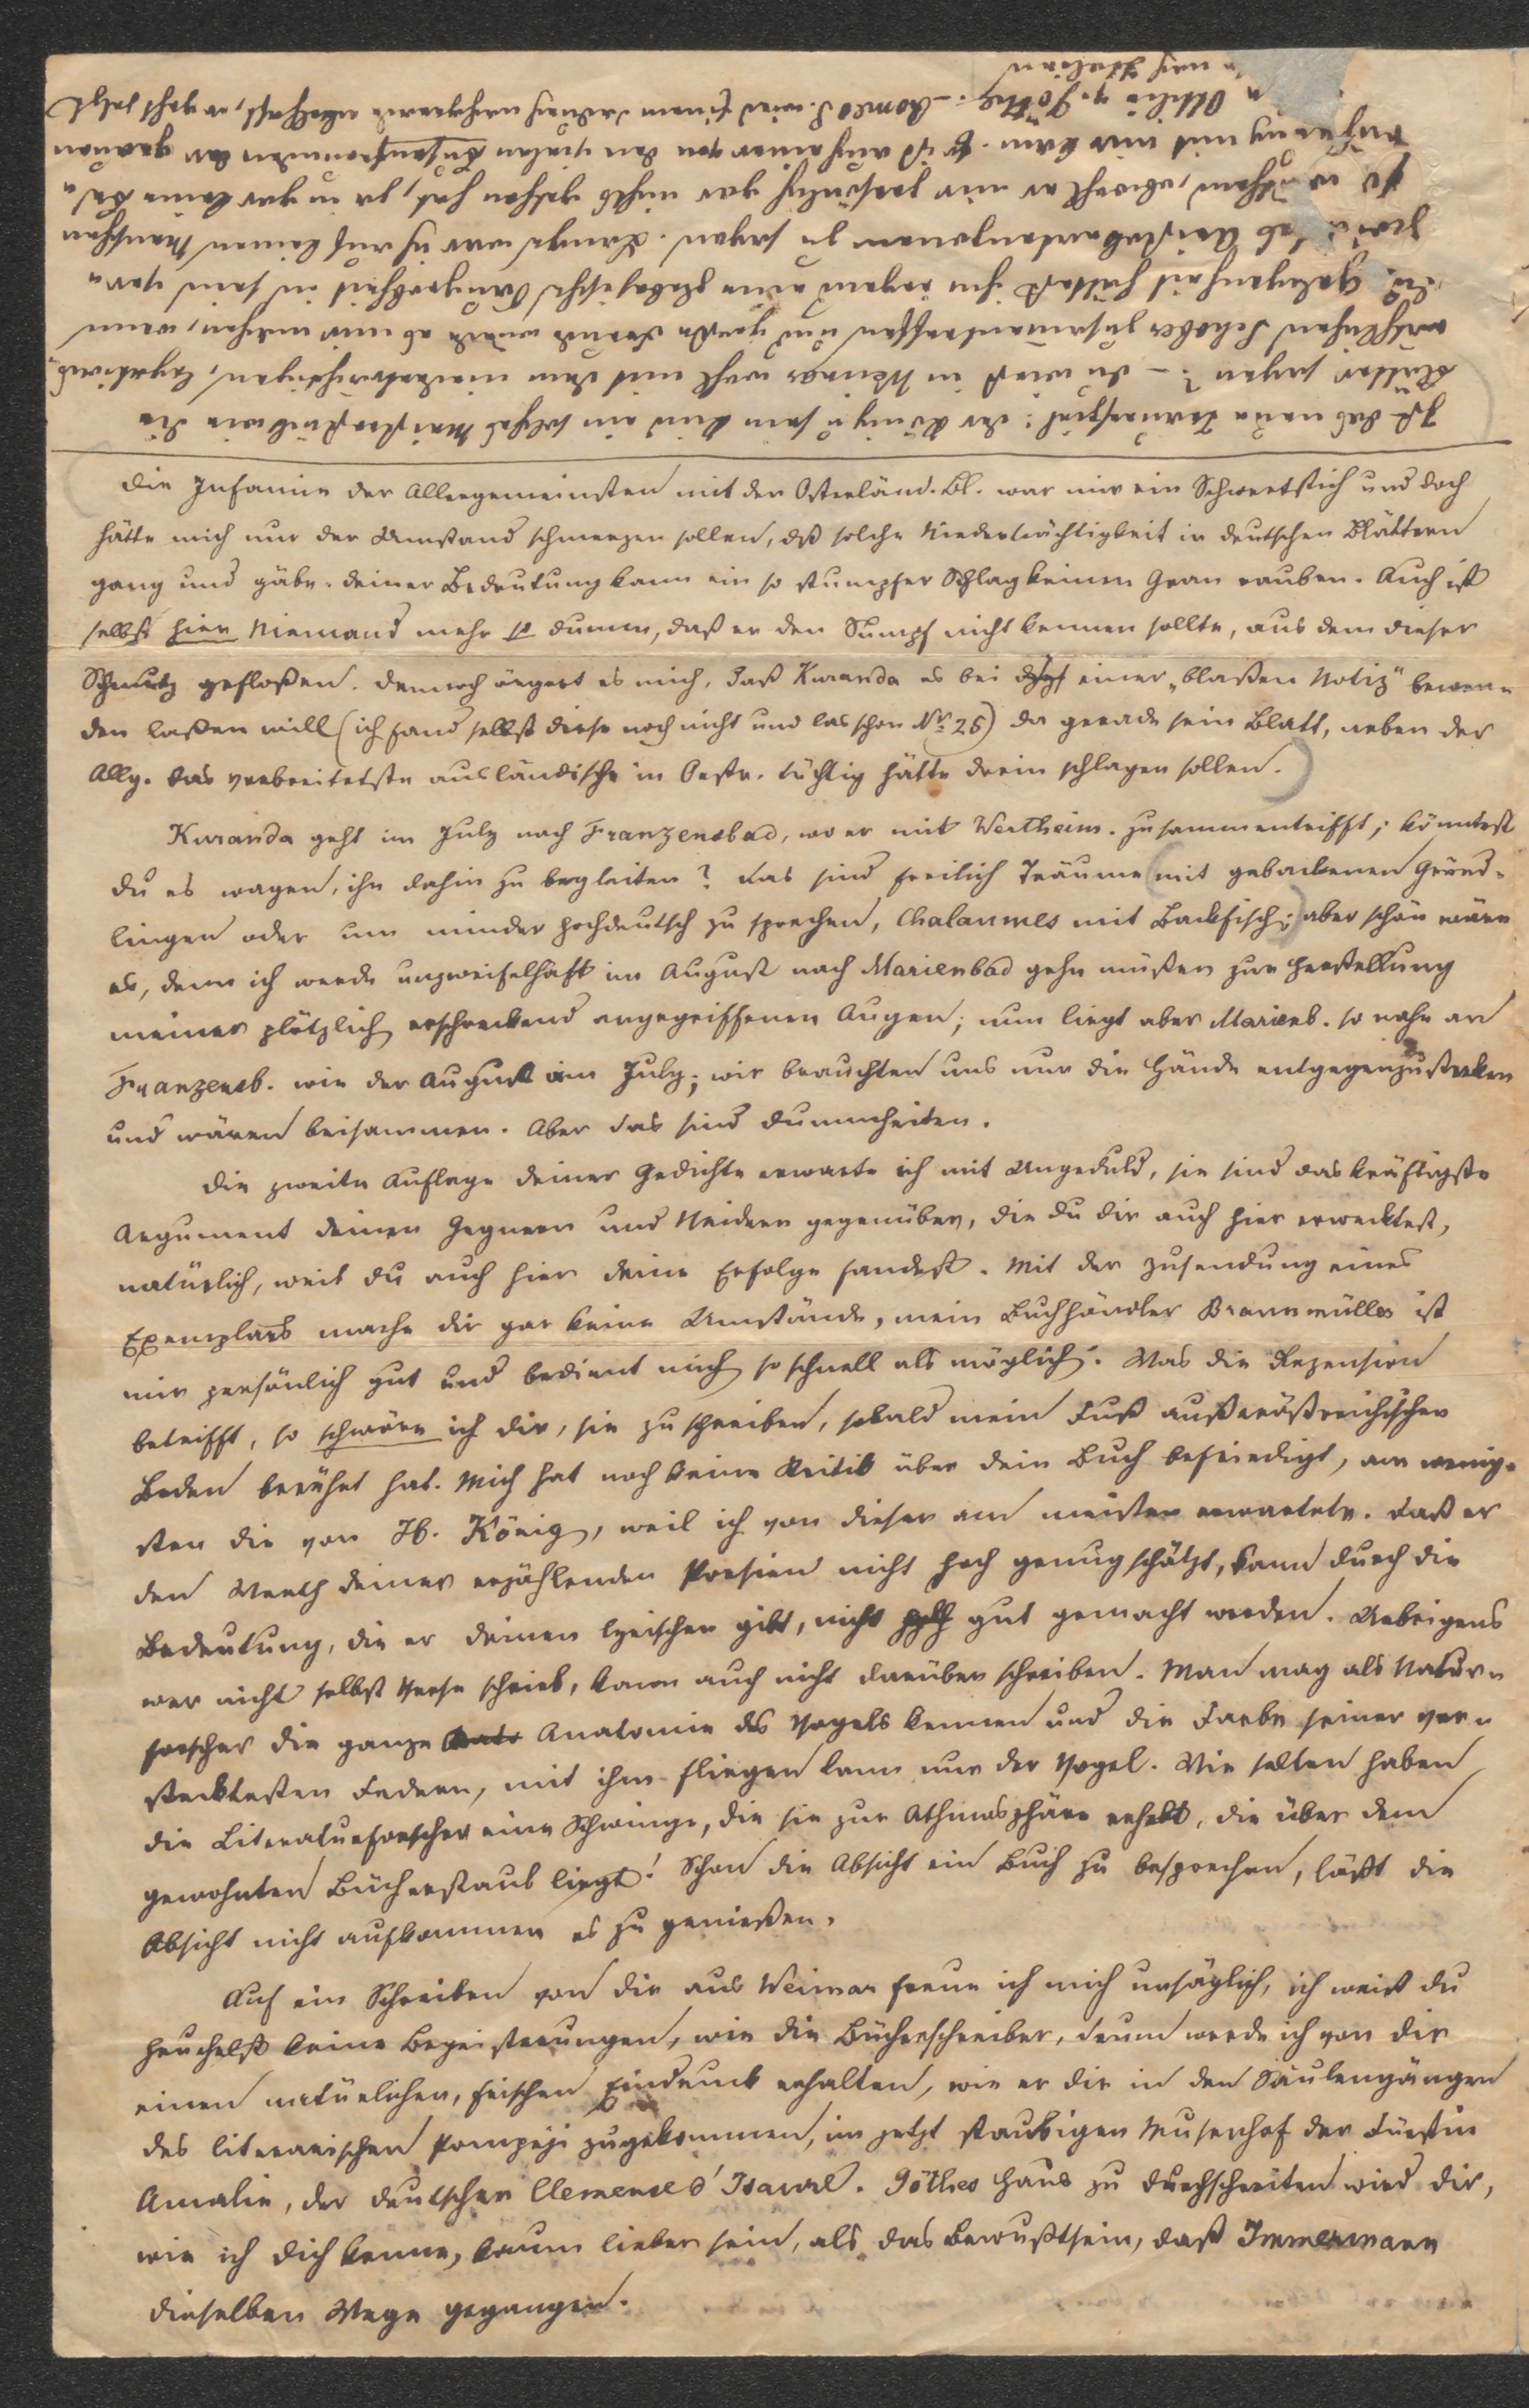 Die Infamie der Allergemeinsten mit den Österländ. Bl. war mir ein Schwertstich und doch
hätte mich nur der Umstand schmerzen sollen, dß solche Niederträchtigkeit in deutschen Blättern
gang und gäbe. Deiner Bedeutung kann ein so stumpfer Schlag keinen Gran rauben. Auch ist
selbst hier Niemand mehr so dumm, daß er den Sumpf nicht kennen sollte, aus dem dieser
Schmutz gefloßen. Dennoch ärgert es mich, daß Kuranda es bei einer „blaßen Notiz" bewen-
den laßen will (ich fand selbst diese noch nicht und las schon Nr. 25) da gerade sein Blatt, neben der
Allg. das verbreitetste ausländische in Oestr. tüchtig hätte drein schlagen sollen.
Kuranda geht im July nach Franzensbad, wo er mit Wertheim. zusammentrifft; könntest
du es wagen, ihn dahin zu begleiten? Das sind freilich Träume (mit gebackenen Gründ-
lingen oder um minder hochdeutsch zu sprechen, Chalaumes mit Backfisch;) aber schön wäre
es, denn ich werde unzweifelhaft im August nach Marienbad gehn müßen zur Herstellung
meiner plötzlich erschreckend angegriffenen Augen; nun liegt aber Marienb. so nahe an
Franzensb. wie der August am July; wir brauchten uns nur die Hände entgegenzustrecken
und wären beisammen. Aber das sind Dummheiten.
Die zweite Auflage deiner Gedichte erwarte ich mit Ungeduld, sie sind das kräftigste
Argument deinen Gegnern und Neidern gegenüber, die du dir auch hier erwecktest,
natürlich, weil du auch hier deine Erfolge fandest. Mit der Zusendung eines
Exemplars mache dir gar keine Umstände, mein Buchhändler Braunmüller ist
mir persönlich gut und bedient mich so schnell als möglich. Was die Rezension
betrifft, so schwöre ich dir, sie zu schreiben, sobald mein Fuß außeröstreichischen
Boden berührt hat. Mich hat noch keine Kritik über dein Buch befriedigt, am wenig-
sten die von H. König, weil ich von dieser am meisten erwartete. Daß er
den Werth deiner erzählenden Poesien nicht hoch genug schätzt, kann durch die
Bedeutung, die er deinen lyrischen gibt, nicht gut gemacht werden. Uebrigens
wer nicht selbst Verse schrieb, kann auch nicht darüber schreiben. Man mag als Natur-
forscher die ganze Anatomie des Vogels kennen und die Farbe seiner ver-
stecktesten Federn, mit ihm fliegen kann nur der Vogel. Wie selten haben
die Literaturforscher eine Schwinge, die sie zur Athmosphäre erhebt, die über dem
gewohnten Bücherstaub liegt! Schon die Absicht ein Buch zu besprechen, läßt die
Absicht nicht aufkommen es zu genießen.
Auf ein Schreiben von dir aus Weimar freue ich mich unsäglich, ich weiß du
heuchelst keine Begeisterungen, wie die Bücherschreiber, drum werde ich von dir
einen natürlichen, frischen Eindruck erhalten, wie er dir in den Säulengängen
des literarischen Pompeji zugekommen, im jetzt staubigen Musenhof der Fürstin
Amalie, der deutschen Clemence d'Isaure. Göthes Haus zu durchschreiten wird dir,
wie ich dich kenne, kaum lieber sein, als das Bewußtsein, daß Immermann
dieselben Wege gegangen.
Ist das neue Trauerspiel: der König u sein Kind ein solches Meisterstück wie die
Blätter sagen? – du wirst in Weimar wohl mit dem niederträchtigen, Legations-
rathlichen Schober zusammentreffen und
die Gelegenheit hättest ihm irgend eine
zu sagen. Lange war ich auf keinen Menschen
so obwohl er mir persönlich gar nichts gethan hat, ja in gar keine Be-
rührung mit mir kam. Er ist auch einer von den vielen Busenfreunden der
Ottilie v. Göthe. – Romeo S. wird
nach Italien